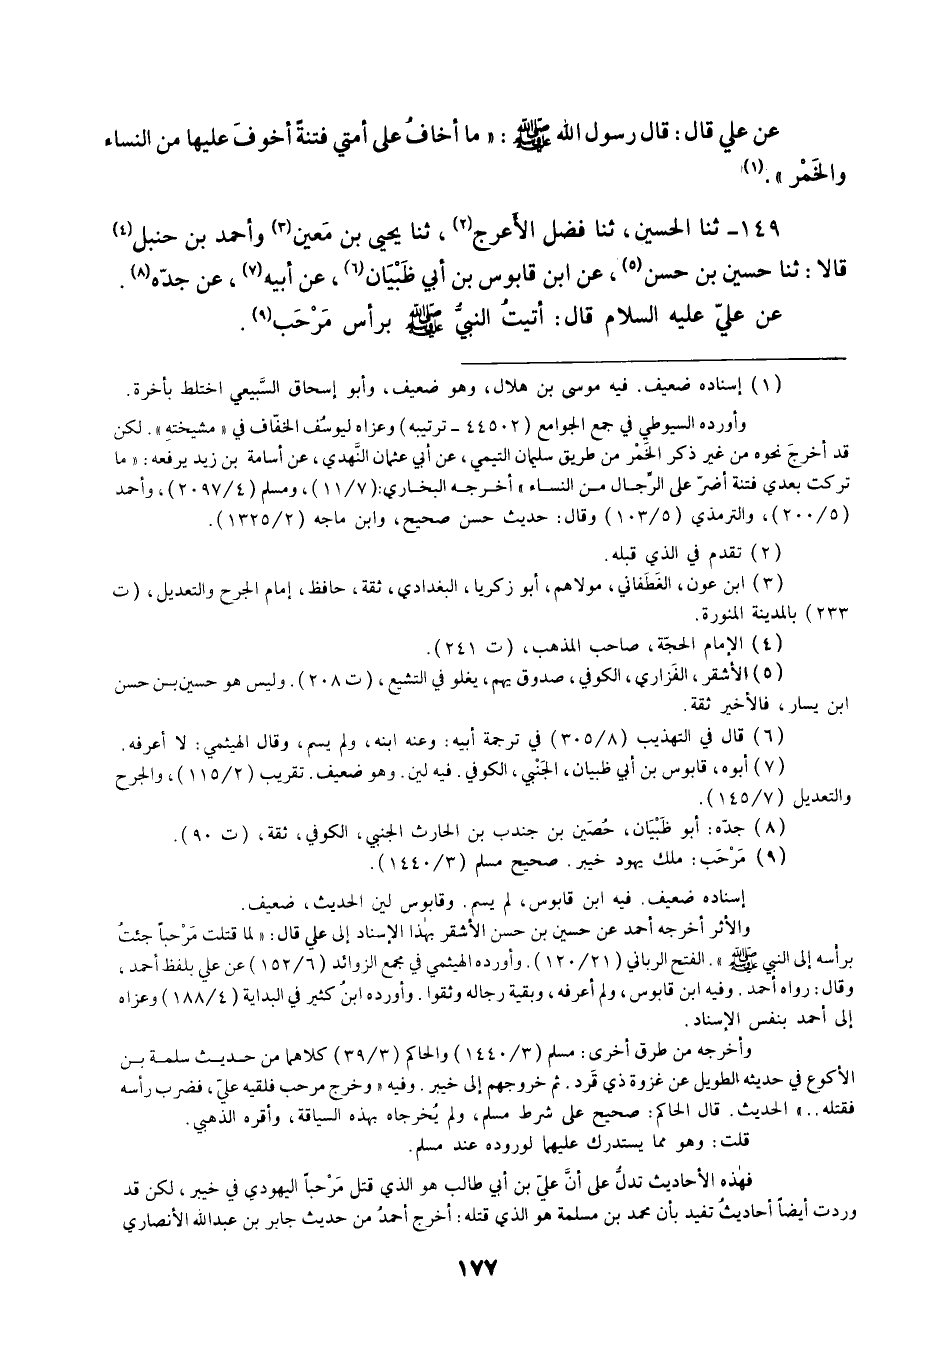 عن علي قال: قال رسول الله ﷺ: « ما أخافُ على أمتي فتنةً أخوفَ عليها من النساء
والخَمْر ».(١)
١٤٩- ثنا الحسين، ثنا فضل الأَعرج(٢)، ثنا يحيى بن مَعين(٣) وأحمد بن حنبل(٤)
قالا: ثنا حسين بن حسن(٥)، عن ابن قابوس بن أبي ظَبْيَان(٦)، عن أبيه(٧)، عن جدّه(٨).
عن عليّ عليه السلام قال: أتيتُ النبيُّ ﷺ برأس مَرْحَب(٩).
(١) إسناده ضعيف. فيه موسى بن هلال، وهو ضعيف، وأبو إسحاق السَّبيعي اختلط بأخرة.
وأورده السيوطي في جمع الجوامع (٤٤٥٠٢ - ترتيبه) وعزاه ليوسُف الخفّاف في « مشيخته ». لكن
قد أخرجَ نحوه من غير ذكر الخَمْر من طريق سليمان التيمي، عن أبي عثمان النَّهدي، عن أسامة بن زيد يرفعه: « ما
تركت بعدي فتنة أضرّ على الرِّجال مـن النساء » أخـرجـه البخـاري:(١١/٧)، ومسلم (٢٠٩٧/٤)، وأحمد
(٢٠٠/٥)، والترمذي (١٠٣/٥) وقال: حديث حسن صحيح، وابن ماجه (١٣٢٥/٢).
(٢) تقدم في الذي قبله.
(٣) ابن عون، الغَطَفاني، مولاهم، أبو زكريا، البغدادي، ثقة، حافظ، إمام الجرح والتعديل، (ت
٢٣٣) بالمدينة المنورة.
(٤) الإمام الحجّة، صاحب المذهب، (ت ٢٤١).
(٥) الأشقر، الفَزاري، الكوفي، صدوق يهم، يغلو في التشيع، (ت ٢٠٨). وليس هو حسين بـن حسن
ابن يسار، فالأخير ثقة.
(٦) قال في التهذيب (٣٠٥/٨) في ترجمة أبيه: وعنه ابنه، ولم يسم، وقال الهيثمي: لا أعرفه.
(٧) أبوه، قابوس بن أبي ظبيان، الجَنْبي، الكوفي. فيه لين. وهو ضعيف. تقريب (١١٥/٢)، والجرح
والتعديل (١٤٥/٧).
(٨) جدّه: أبو ظَبْيَان، حُصَين بن جندب بن الحارث الجنبي، الكوفي، ثقة، (ت ٩٠).
(٩) مَرْحَب: ملك يهود خيبر. صحيح مسلم (١٤٤٠/٣).
إسناده ضعيف. فيه ابن قابوس، لم يسم. وقابوس لين الحديث، ضعيف.
والأثر أخرجه أحمد عن حسين بن حسن الأشقر بهٰذا الإسناد إلى علي قال: « لما قتلت مَرْحباً جئتُ
برأسه إلى النبي ﷺ ». الفتح الرباني (١٢٠/٢١). وأورده الهيثمي في مجمع الزوائد (١٥٢/٦) عن علي بلفظ أحمد،
وقال: رواه أحمد. وفيه ابن قابوس، ولم أعرفه، وبقية رجاله وثقوا. وأورده ابنُ كثير في البداية (١٨٨/٤) وعزاه
إلى أحمد بنفس الإسناد.
وأخرجه من طرق أخرى: مسلم (١٤٤٠/٣) والحاكم (٣٩/٣) كلاهما من حـديـث سلمـة بـن
الأكوع في حديثه الطويل عن غزوة ذي قَرد. ثم خروجهم إلى خيبر. وفيه « وخرج مرحب فلقيه عليّ، فضرب رأسه
فقتله.. » الحديث. قال الحاكم: صحيح على شرط مسلم، ولم يُخرجاه بهذه السياقة، وأقره الذهبي.
قلت: وهو مما يستدرك عليهما لوروده عند مسلم.
فهٰذه الأحاديث تدلُّ على أنَّ عليّ بن أبي طالب هو الذي قتل مَرْحباً اليهودي في خيبر، لكن قد
وردت أيضاً أحاديثُ تفيد بأن محمد بن مسلمة هو الذي قتله: أخرج أحمدُ من حديث جابر بن عبدالله الأنصاري
١٧٧